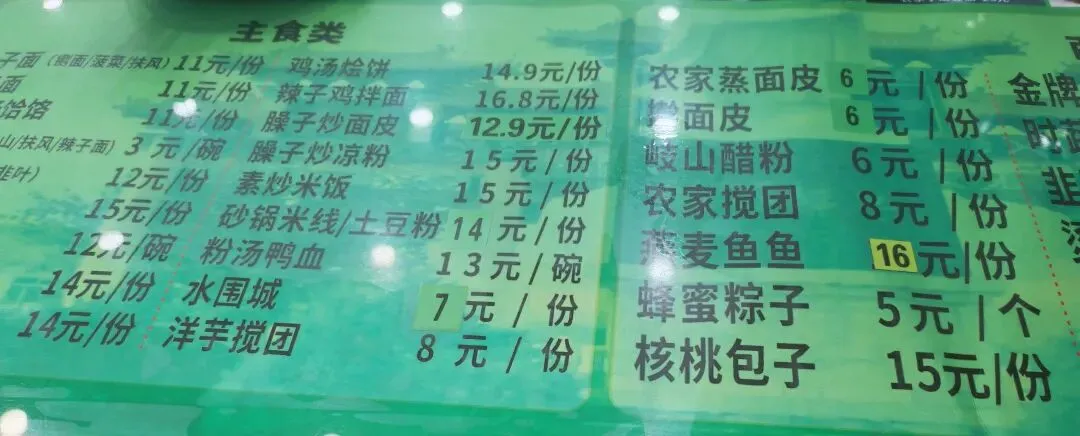 主食类
子面（蘸面/菠菜/扶风）11元/份
面 11元/份
饸饹 11元/份
山/扶风/辣子面）3元/碗
韭叶） 12元/份
15元/份
12元/碗
14元/份
14元/份
鸡汤烩饼 14.9元/份
辣子鸡拌面 16.8元/份
臊子炒面皮 12.9元/份
臊子炒凉粉 15元/份
素炒米饭 15元/份
砂锅米线/土豆粉 14元/份
粉汤鸭血 13元/碗
水围城 7元/份
洋芋搅团 8元/份
农家蒸面皮 6元/份
擀面皮 6元/份
岐山醋粉 6元/份
农家搅团 8元/份
燕麦鱼鱼 16元/份
蜂蜜粽子 5元/个
核桃包子 15元/份
金牌
时蔬
韭